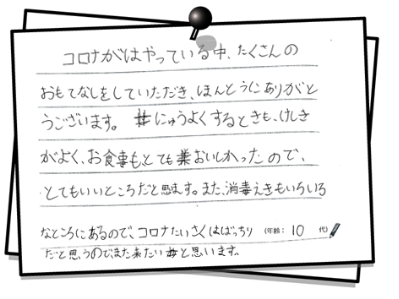 コロナがはやっている中、たくさんの
おもてなしをしていただき、ほんとうにありがと
うございます。にゅうよくするときも、けしき
がよく、お食事もとてもおいしかったので、
とてもいいところだと思います。また、消毒えきもいろいろ
なところにあるので、コロナたいさくはばっちり (年齢: 10 代)
だと思うのでまた来たいと思います。